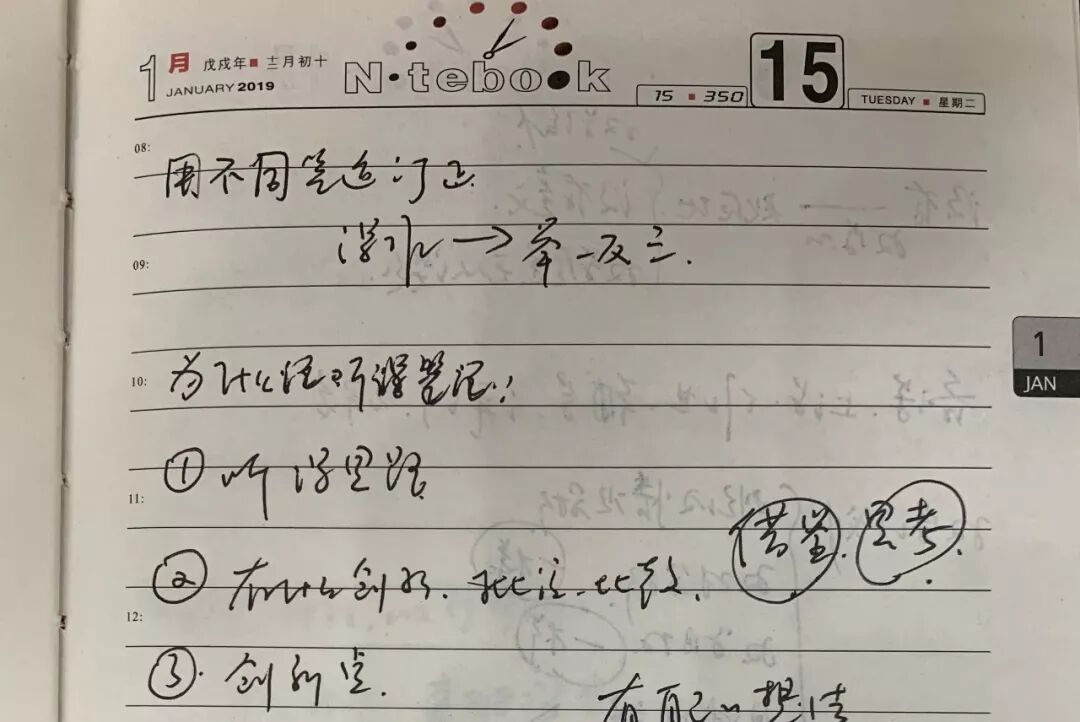 1月 戊戌年 十二月初十
JANUARY 2019
Notebook
15 350
15
TUESDAY 星期二
08:
用不同笔迹订正.
错题 → 举一反三.
09:
10: 为什么记听课笔记?
1
JAN
① 听课思路
11:
借鉴. 思考.
② 有什么创新. 批注.
12:
③. 创新点.
有自己的想法